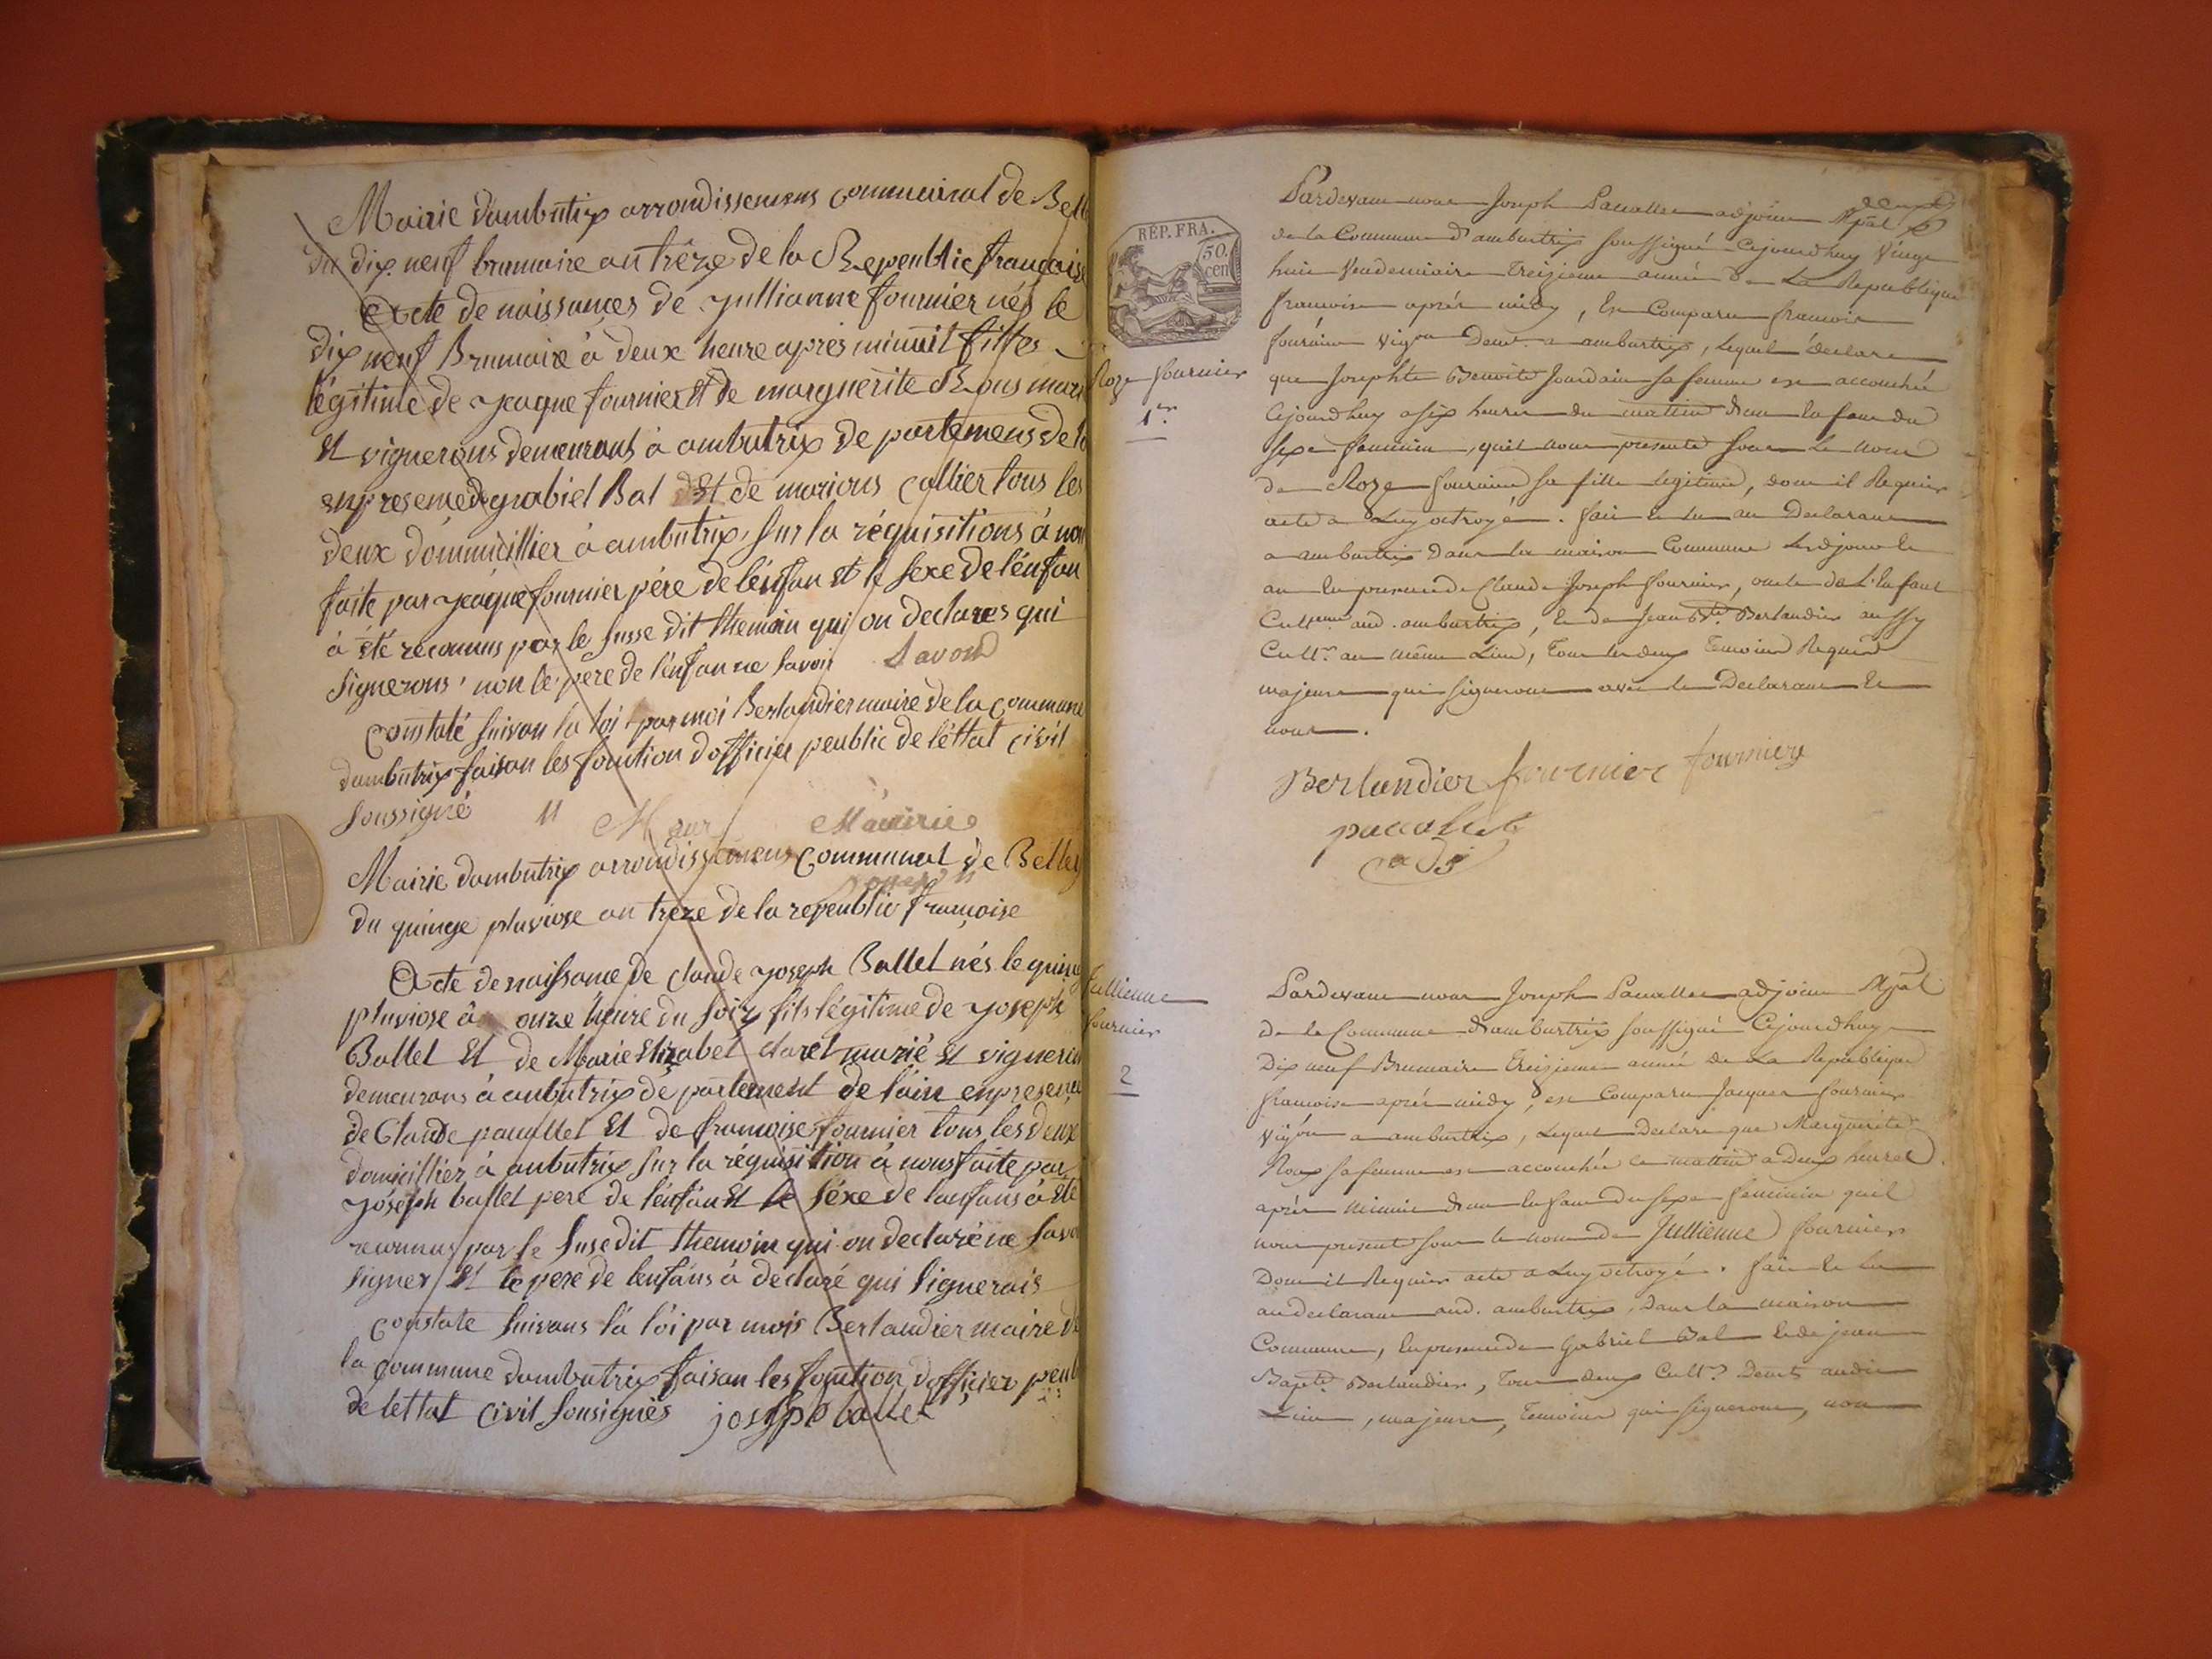 Mairie dambutrix arrondissemens communal de Bell
du dix neuf brumaire an trêze de la Republic française
Acte de naissances de Jullianne fournier nés le
dix neuf Brumaire à deux heure apres minuit filles
légitime de Jeaque fournier et de marguerite Roux mari
et vignerons demeurant à ambutrix de partemens de l
enpresence de grabiel Bal et de marious Collier tous les
deux dommicillier à ambutrix, sur la réquisitions à nou
faite par Jeaque fournier pére de lénfan et le sexe de lénfan
à été reconnus par le susse dit themoin qui on declares qui
signerons, non le pére de lénfan ne savoir
Constaté suivan la loi par moi Berlandier maire de la commune
dambutrix faisan les fonction dofficier peublic de léttat civil
soussigné
Mairie
Mairie dambutrix arrondissemens communal de Belley
du quinze pluviose an trêze de la repeublic françoise
Acte de naissance de claude joseph Ballet nés le quinz
pluviose à onze heure du soir fils légitime de joseph
Ballet et de Marie Elizabet claret marié et vigneron
demeurans à ambutrix de partement de lain enpresence
de Claude pauallet et de francoise fournier tous les deux
domicillier à anbutrix sur la réquisition à nous faite par
joséph ballet pere de lénfan et le séxe de lanfans à été
reconnus par le susedit themoin qui on declaré ne savo
signer et le pere de lenfans à declaré qui signerais
constate suivans la loi par mois Berlandier maire de
la commune dambutrix faisan les fontion dofficier peub
de lettat civil sousignés joseph ballet
REP. FRA.
50.
cen
Roze fournier
1er
Pardevant nous Joseph Pauallet adjoint Mpâl
de la Commune d'ambutrix soussigné Cejourdhuy vingt
huit Vendemiaire Treizieme année de La Republique
francoise aprés midy, Est Comparu francois
fournier vigon Demt a ambutrix, Lequel declare
que Josephte Benoite Jourdain sa femme est accouchée
Cejourdhuy a six heures du mattin d'un Enfant du
sexe feminin, quil nous presente sous Le nom
de Roze fournier sa fille legitime, dont il Requier
acte a Luy octroyé. fait et Lu au Declarant
a ambutrix dans la maison Commune
en presence de Claude Joseph fournier, oncle de L'Enfant
Cultivr aud. ambutrix, Et de Jean Bte Berlandier aussy
Cultr au même Lieu, Tous les deux Temoins Requis
majeurs qui signeront avec le Declarant Et
nous.
Berlandier fournier fournier
pauallet
adj
Jullienne
fournier
2
Pardevant nous Joseph Pauallet adjoint Mpâl
de la Commune d'ambutrix soussigné Cejourdhuy
Dix neuf Brumaire Treizieme année de La Republique
francoise aprés midy, est Comparu Jacques fournier
vigon a ambutrix, Lequel Declare que Marguerite
Roux sa femme est accouchée ce mattin a Deux heures
aprés minuit d'un enfant du sexe feminin quil
nous presente sous le nom de Jullienne fournier
Dont il Requier acte a Luy octroyé. fait Et Lu
au declarant aud. ambutrix, dans la maison
Commune, En presence de Gabriel Bal Et de jean
Bapte Berlandier, Tous deux Cultrs Demts audit
Lieu, majeurs, Temoins qui signeront, non